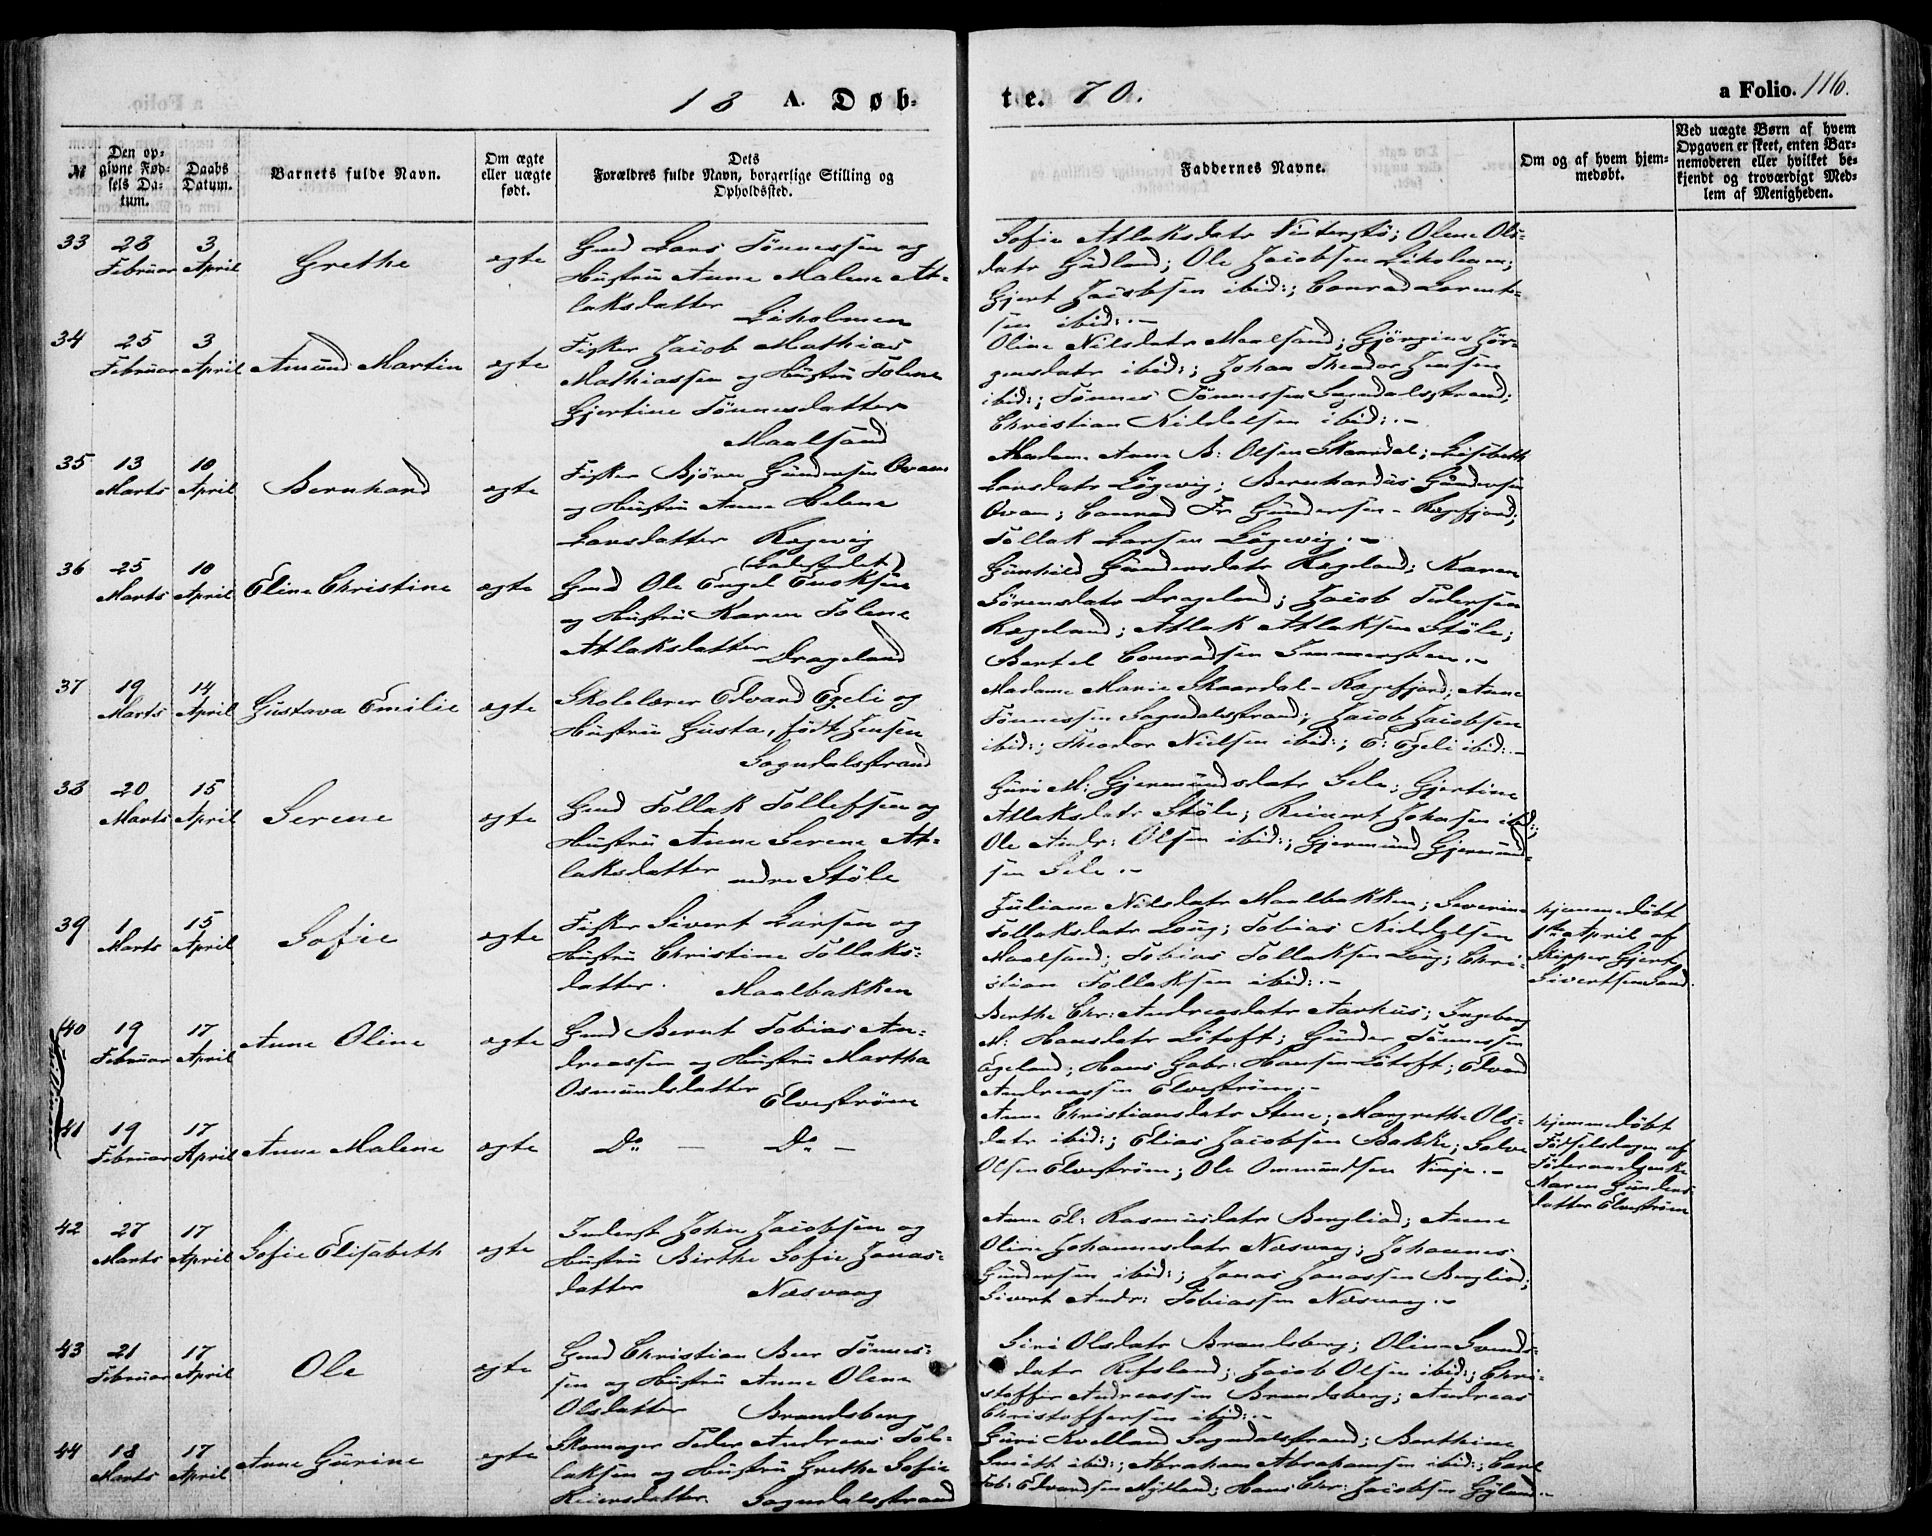 18 A. Døb-
te. 70.
a Folio. 116.
№
Den op-
givne Fød-
sels Da-
tum.
Daabs
Datum.
Barnets fulde Navn.
Om ægte
eller uægte
født.
Dets
Forældres fulde Navn, borgerlige Stilling og
Opholdssted.
Faddernes Navne.
Om og af hvem hjem-
medøbt.
Ved uægte Børn af hvem
Opgaven er skeet, enten Bar-
nemoderen eller hvilket be-
kjendt og troværdigt Med-
lem af Menigheden.
33
28
Februar
3
April
Grethe
ægte
Gmd Lars Tönnessen og
Hustru Anne Malene At-
laksdatter Liholmen
Sofie Atlaksdatr; Olene Ols-
datr Hödland; Ole Jacobsen Liholmen;
Gjert Jacobsen ibid:; Conrad Lorent-
sen ibid:.-
34
25
Februar
3
April
Amund Martin
ægte
Fisker Jacob Mathias
Mathiassen og Hustru Tolene
Gjertine Tönnesdatter
Maalsand
Oline Nilsdatr Maalsand; Gjörgine Jör-
gensdatr ibid:; Johan Theodor Jensen
ibid:; Tönnes Tönnessen Sogndalsstrand;
Christian Kiddelsen ibid:.-
35
13
Marts
10
April
Bernhard
ægte
Fisker Björn Gundersen Ovam
og Hustru Anne Helene
Larsdatter Rægevig
Madam Anne B: Olsen Skaardal; Lisbeth
Larsdatr Lögevig; Bernhardus Gundersen
Ovam; Conrad Fr Gundersen - Rægefjord;
Tollak Larsen Lögevig.-
36
25
Marts
10
April
Eline Christine
ægte
(Ladestedet)
Gmd Ole Engel Enoksen
og Hustru Karen Tolene
Atlaksdatter Drageland
Gunhild Gundersdatr Rægeland; Karen
Sörensdatr Drageland; Jacob Pedersen
Rægeland; Atlak Atlaksen Stöle;
Bertel Conradsen Immersteen.-
37
19
Marts
14
April
Gustava Emilie
ægte
Skolelærer Edvard Egeli og
Hustru Gusta, født Jensen
Sogndalsstrand
Madame Marie Skaardal - Rægefjord; Anne
Tönnessen Sogndalsstrand; Jacob Jacobsen
ibid:; Theodor Nielsen ibid:; E: Egeli ibid:.-
38
20
Marts
15
April
Serene
ægte
Gmd Tollak Tollefsen og
Hustru Anne Serene At-
laksdatter nedre Stöle
Guri M: Gjermundsdatr Sele; Gjertine
Atlaksdatr Stöle; Reinert Johnsen ibid:;
Ole Andr: Olsen ibid:; Gjermund Gjermund-
sen Sele.-
39
1
Marts
15
April
Sofie
ægte
Fisker Sivert Larsen og
Hustru Christine Tollaks-
datter. Maalbakken
Juliane Nilsdatr Maalbakken; Severine
Tollaksdatr Loug; Tobias Kiddelsen
Maalsand; Tobias Tollaksen Loug; Chri-
stian Tollaksen ibid:.-
Hjemmedöbt
1ste April af
Skipper Gjert
Sivertsen Sand.
40
19
Februar
17
April
Anne Oline
ægte
Gmd Bernt Tobias An-
dreassen og Hustru Martha
Osmundsdatter Elvestrøm
Berthe Chr: Andreasdatr Aarhus; Ingeborg
M: Hansdatr Lötoft; Gunder Tönnessen
Egeland; Hans Gabr: Hansen Lötoft; Edvard
Andreassen Elvestrøm.-
Tvillinger
41
19
Februar
17
April
Anne Malene
ægte
Do - Do -
Anne Christiansdatr Stene; Margrethe Ols-
datr ibid:; Elias Jacobsen Bakke; Salve
Olsen Elvestrøm; Ole Ommundsen Vinje.-
Hjemmedöbt
Födselsdagen af
Föderaadsenke
Karen Gunders-
datter Elvestrøm
42
27
Marts
17
April
Sofie Elisabeth
ægte
Inderst John Jacobsen og
Hustru Birthe Sofie Jonas-
datter Næsvaag
Anne El: Rasmusdatr Bergliod; Anne
Oline Johannesdatr Næsvaag; Johannes
Gundersen ibid:; Jonas Jonassen Bergliod;
Sivert Andr: Tobiassen Næsvaag.-
43
21
Februar
17
April
Ole
ægte
Gmd Christian Beer Tönnes-
sen og Hustru Anne Olene
Olsdatter Brandsberg
Siri Olsdatr Brandsberg; Oline Svends-
datr Refsland; Jacob Olsen ibid:; Chri-
stoffer Andreassen Brandsberg; Andreas
Christoffersen ibid:.-
44
18
Marts
17
April
Anne Gurine
ægte
Skomager Peder Andreas Tol-
laksen og Hustru Grethe Sofie
Reiersdatter. Sogndalsstrand
Guri Kvelland Sogndalsstrand; Berthine
Smith ibid:; Abraham Abrahamsen ibid:; Carl
Tob: Edvardsen Mydland; Hans Chr: Jacobsen Gyland.-